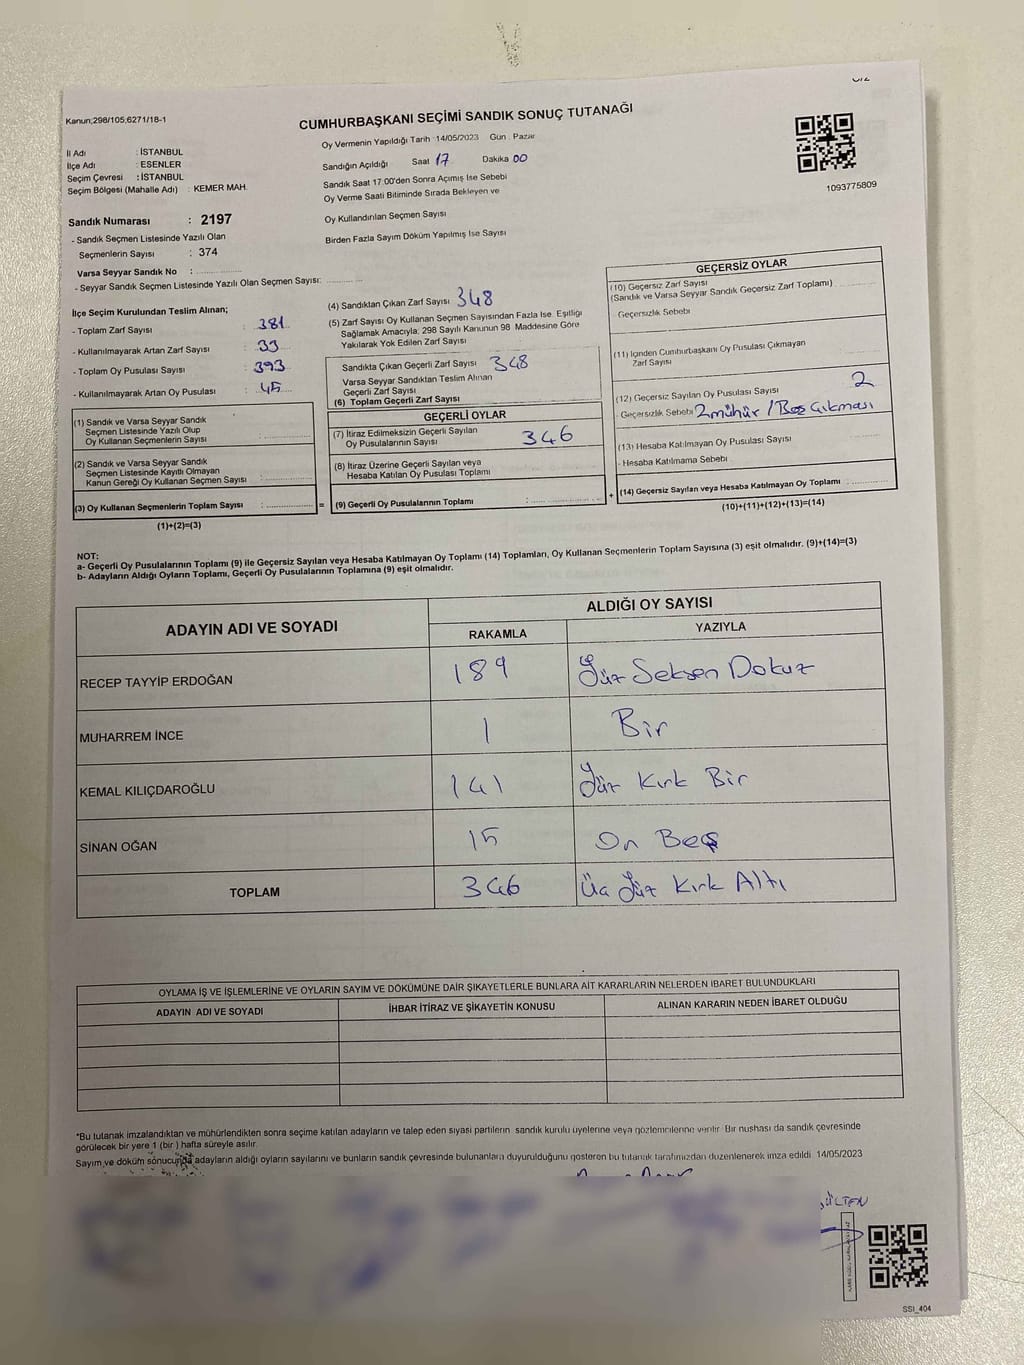 Kanun;298/105,6271/18-1
CUMHURBAŞKANI SEÇİMİ SANDIK SONUÇ TUTANAĞI
Oy Vermenin Yapıldığı Tarih 14/05/2023 Gün Pazar
İl Adı : İSTANBUL
İlçe Adı : ESENLER
Seçim Çevresi : İSTANBUL
Seçim Bölgesi (Mahalle Adı) : KEMER MAH.
Sandığın Açıldığı Saat 17 Dakika 00
Sandık Saat 17:00'den Sonra Açımış Ise Sebebi
Oy Verme Saati Bitiminde Sırada Bekleyen ve
Oy Kullandırılan Seçmen Sayısı
Birden Fazla Sayım Döküm Yapılmış Ise Sayısı
1093775809
Sandık Numarası : 2197
- Sandık Seçmen Listesinde Yazılı Olan
Seçmenlerin Sayısı : 374
Varsa Seyyar Sandık No :
- Seyyar Sandık Seçmen Listesinde Yazılı Olan Seçmen Sayısı:
İlçe Seçim Kurulundan Teslim Alınan;
- Toplam Zarf Sayısı : 381
- Kullanılmayarak Artan Zarf Sayısı : 33
- Toplam Oy Pusulası Sayısı : 393
- Kullanılmayarak Artan Oy Pusulası : 45
(1) Sandık ve Varsa Seyyar Sandık
Seçmen Listesinde Yazılı Olup
Oy Kullanan Seçmenlerin Sayısı :
(2) Sandık ve Varsa Seyyar Sandık
Seçmen Listesinde Kayıtlı Olmayan
Kanun Gereği Oy Kullanan Seçmen Sayısı :
(3) Oy Kullanan Seçmenlerin Toplam Sayısı : =
(1)+(2)=(3)
(4) Sandıktan Çıkan Zarf Sayısı 348
(5) Zarf Sayısı Oy Kullanan Seçmen Sayısından Fazla Ise, Eşitliği
Sağlamak Amacıyla; 298 Sayılı Kanunun 98 Maddesine Göre
Yakılarak Yok Edilen Zarf Sayısı
Sandıkta Çıkan Geçerli Zarf Sayısı 348
Varsa Seyyar Sandıktan Teslim Alınan
Geçerli Zarf Sayısı
(6) Toplam Geçerli Zarf Sayısı
GEÇERLİ OYLAR
(7) İtiraz Edilmeksizin Geçerli Sayılan
Oy Pusulalarının Sayısı 346
(8) İtiraz Üzerine Geçerli Sayılan veya
Hesaba Katılan Oy Pusulası Toplamı
(9) Geçerli Oy Pusulalarının Toplamı : +
GEÇERSİZ OYLAR
(10) Geçersiz Zarf Sayısı
(Sandık ve Varsa Seyyar Sandık Geçersiz Zarf Toplamı)
Geçersizlik Sebebi
(11) İçinden Cumhurbaşkanı Oy Pusulası Çıkmayan
Zarf Sayısı
(12) Geçersiz Sayılan Oy Pusulası Sayısı 2
- Geçersizlik Sebebi 2 mühür / Boş Çıkması
(13) Hesaba Katılmayan Oy Pusulası Sayısı
- Hesaba Katılmama Sebebi
(14) Geçersiz Sayılan veya Hesaba Katılmayan Oy Toplamı :
(10)+(11)+(12)+(13)=(14)
NOT:
a- Geçerli Oy Pusulalarının Toplamı (9) ile Geçersiz Sayılan veya Hesaba Katılmayan Oy Toplamı (14) Toplamları, Oy Kullanan Seçmenlerin Toplam Sayısına (3) eşit olmalıdır. (9)+(14)=(3)
b- Adayların Aldığı Oyların Toplamı, Geçerli Oy Pusulalarının Toplamına (9) eşit olmalıdır.
ADAYIN ADI VE SOYADI
ALDIĞI OY SAYISI
RAKAMLA YAZIYLA
RECEP TAYYİP ERDOĞAN 189 Yüz Seksen Dokuz
MUHARREM İNCE 1 Bir
KEMAL KILIÇDAROĞLU 141 Yüz Kırk Bir
SİNAN OĞAN 15 On Beş
TOPLAM 346 Üç Yüz Kırk Altı
OYLAMA İŞ VE İŞLEMLERİNE VE OYLARIN SAYIM VE DÖKÜMÜNE DAİR ŞİKAYETLERLE BUNLARA AİT KARARLARIN NELERDEN İBARET BULUNDUKLARI
ADAYIN ADI VE SOYADI İHBAR İTİRAZ VE ŞİKAYETİN KONUSU ALINAN KARARIN NEDEN İBARET OLDUĞU
*Bu tutanak imzalandıktan ve mühürlendikten sonra seçime katılan adayların ve talep eden siyasi partilerin sandık kurulu üyelerine veya gözlemcilerine verilir. Bir nushası da sandık çevresinde
görülecek bir yere 1 (bir) hafta süreyle asılır.
Sayım ve döküm sonucunda adayların aldığı oyların sayılarını ve bunların sandık çevresinde bulunanlara duyurulduğunu gösteren bu tutanak tarafımızdan düzenlenerek imza edildi 14/05/2023
SSI_404